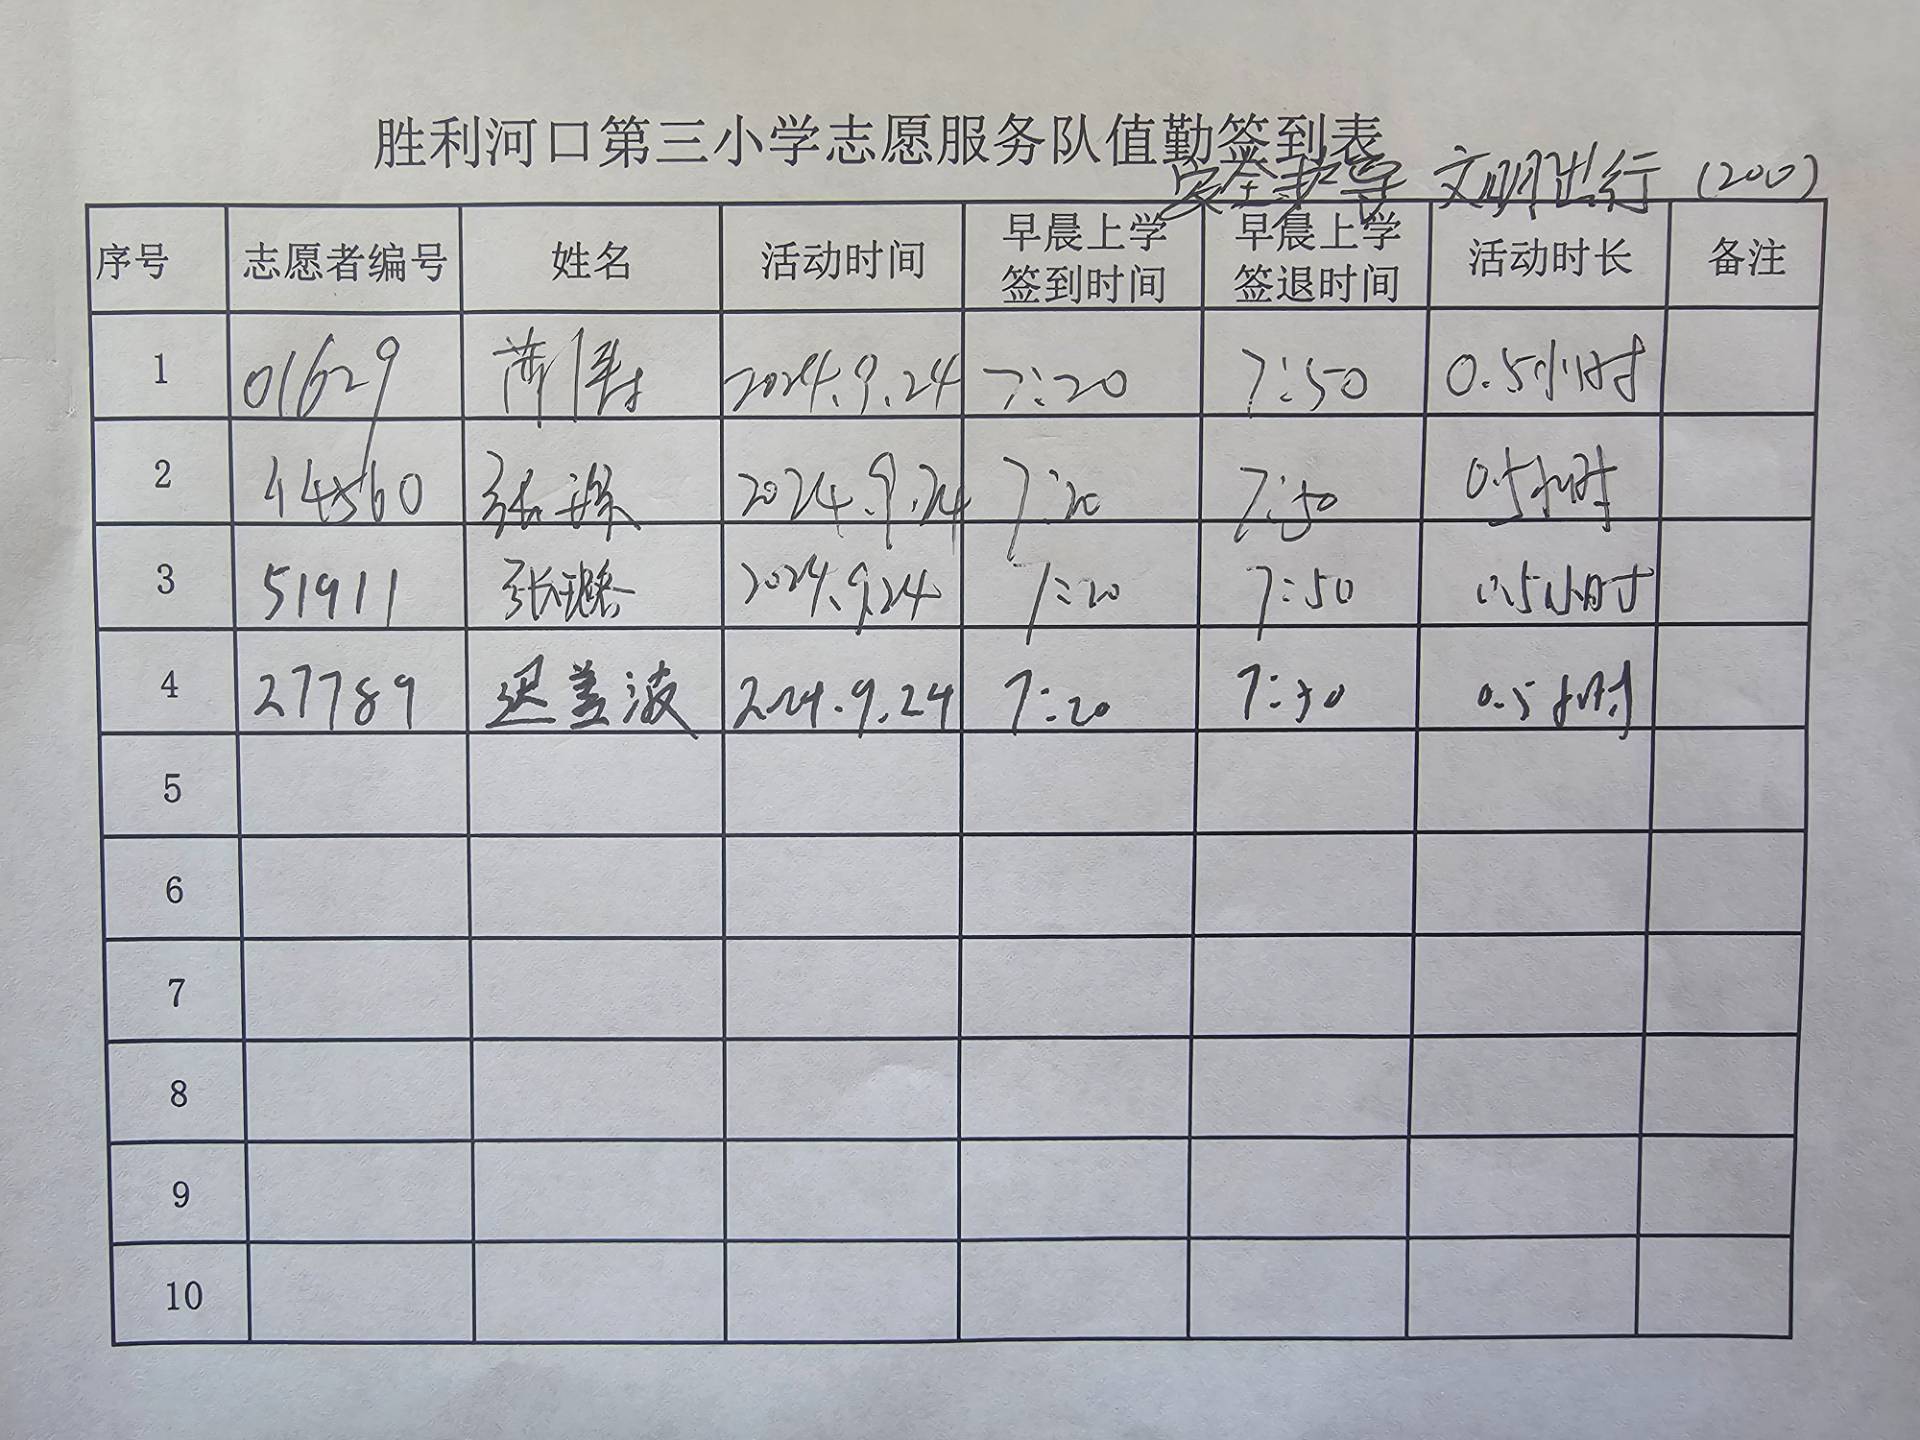 胜利河口第三小学志愿服务队值勤签到表
安全护导 文明出行 (200)
序号 志愿者编号 姓名 活动时间 早晨上学签到时间 早晨上学签退时间 活动时长 备注
1 01629 2024.9.24 7:20 7:50 0.5小时
2 44560 张 2024.9.24 7:20 7:50 0.5小时
3 51911 张 2024.9.24 7:20 7:50 0.5小时
4 27789 迟盖波 2024.9.24 7:20 7:50 0.5小时
5
6
7
8
9
10